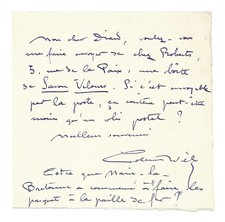 Mon cher Diard, voulez-vous
me faire envoyer de chez Roberts,
5, rue de la Paix, une boîte
de Savon Velours. Si c'est envoyable
par la poste, ça coûtera peut-être
moins qu'un colis postal ?
Meilleur souvenir
Est-ce que
Bretonne a commencé à faire les
parquets à la paille de fer ?